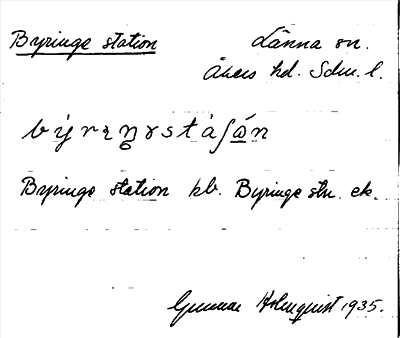 Byringe station Länna sn.
Åkers hd. Sdm. l.
bẏrɩŋɤstàʃa̲n
Byringe station kb. Byringe stn. ek.
Gunnar Holmquist 1935.